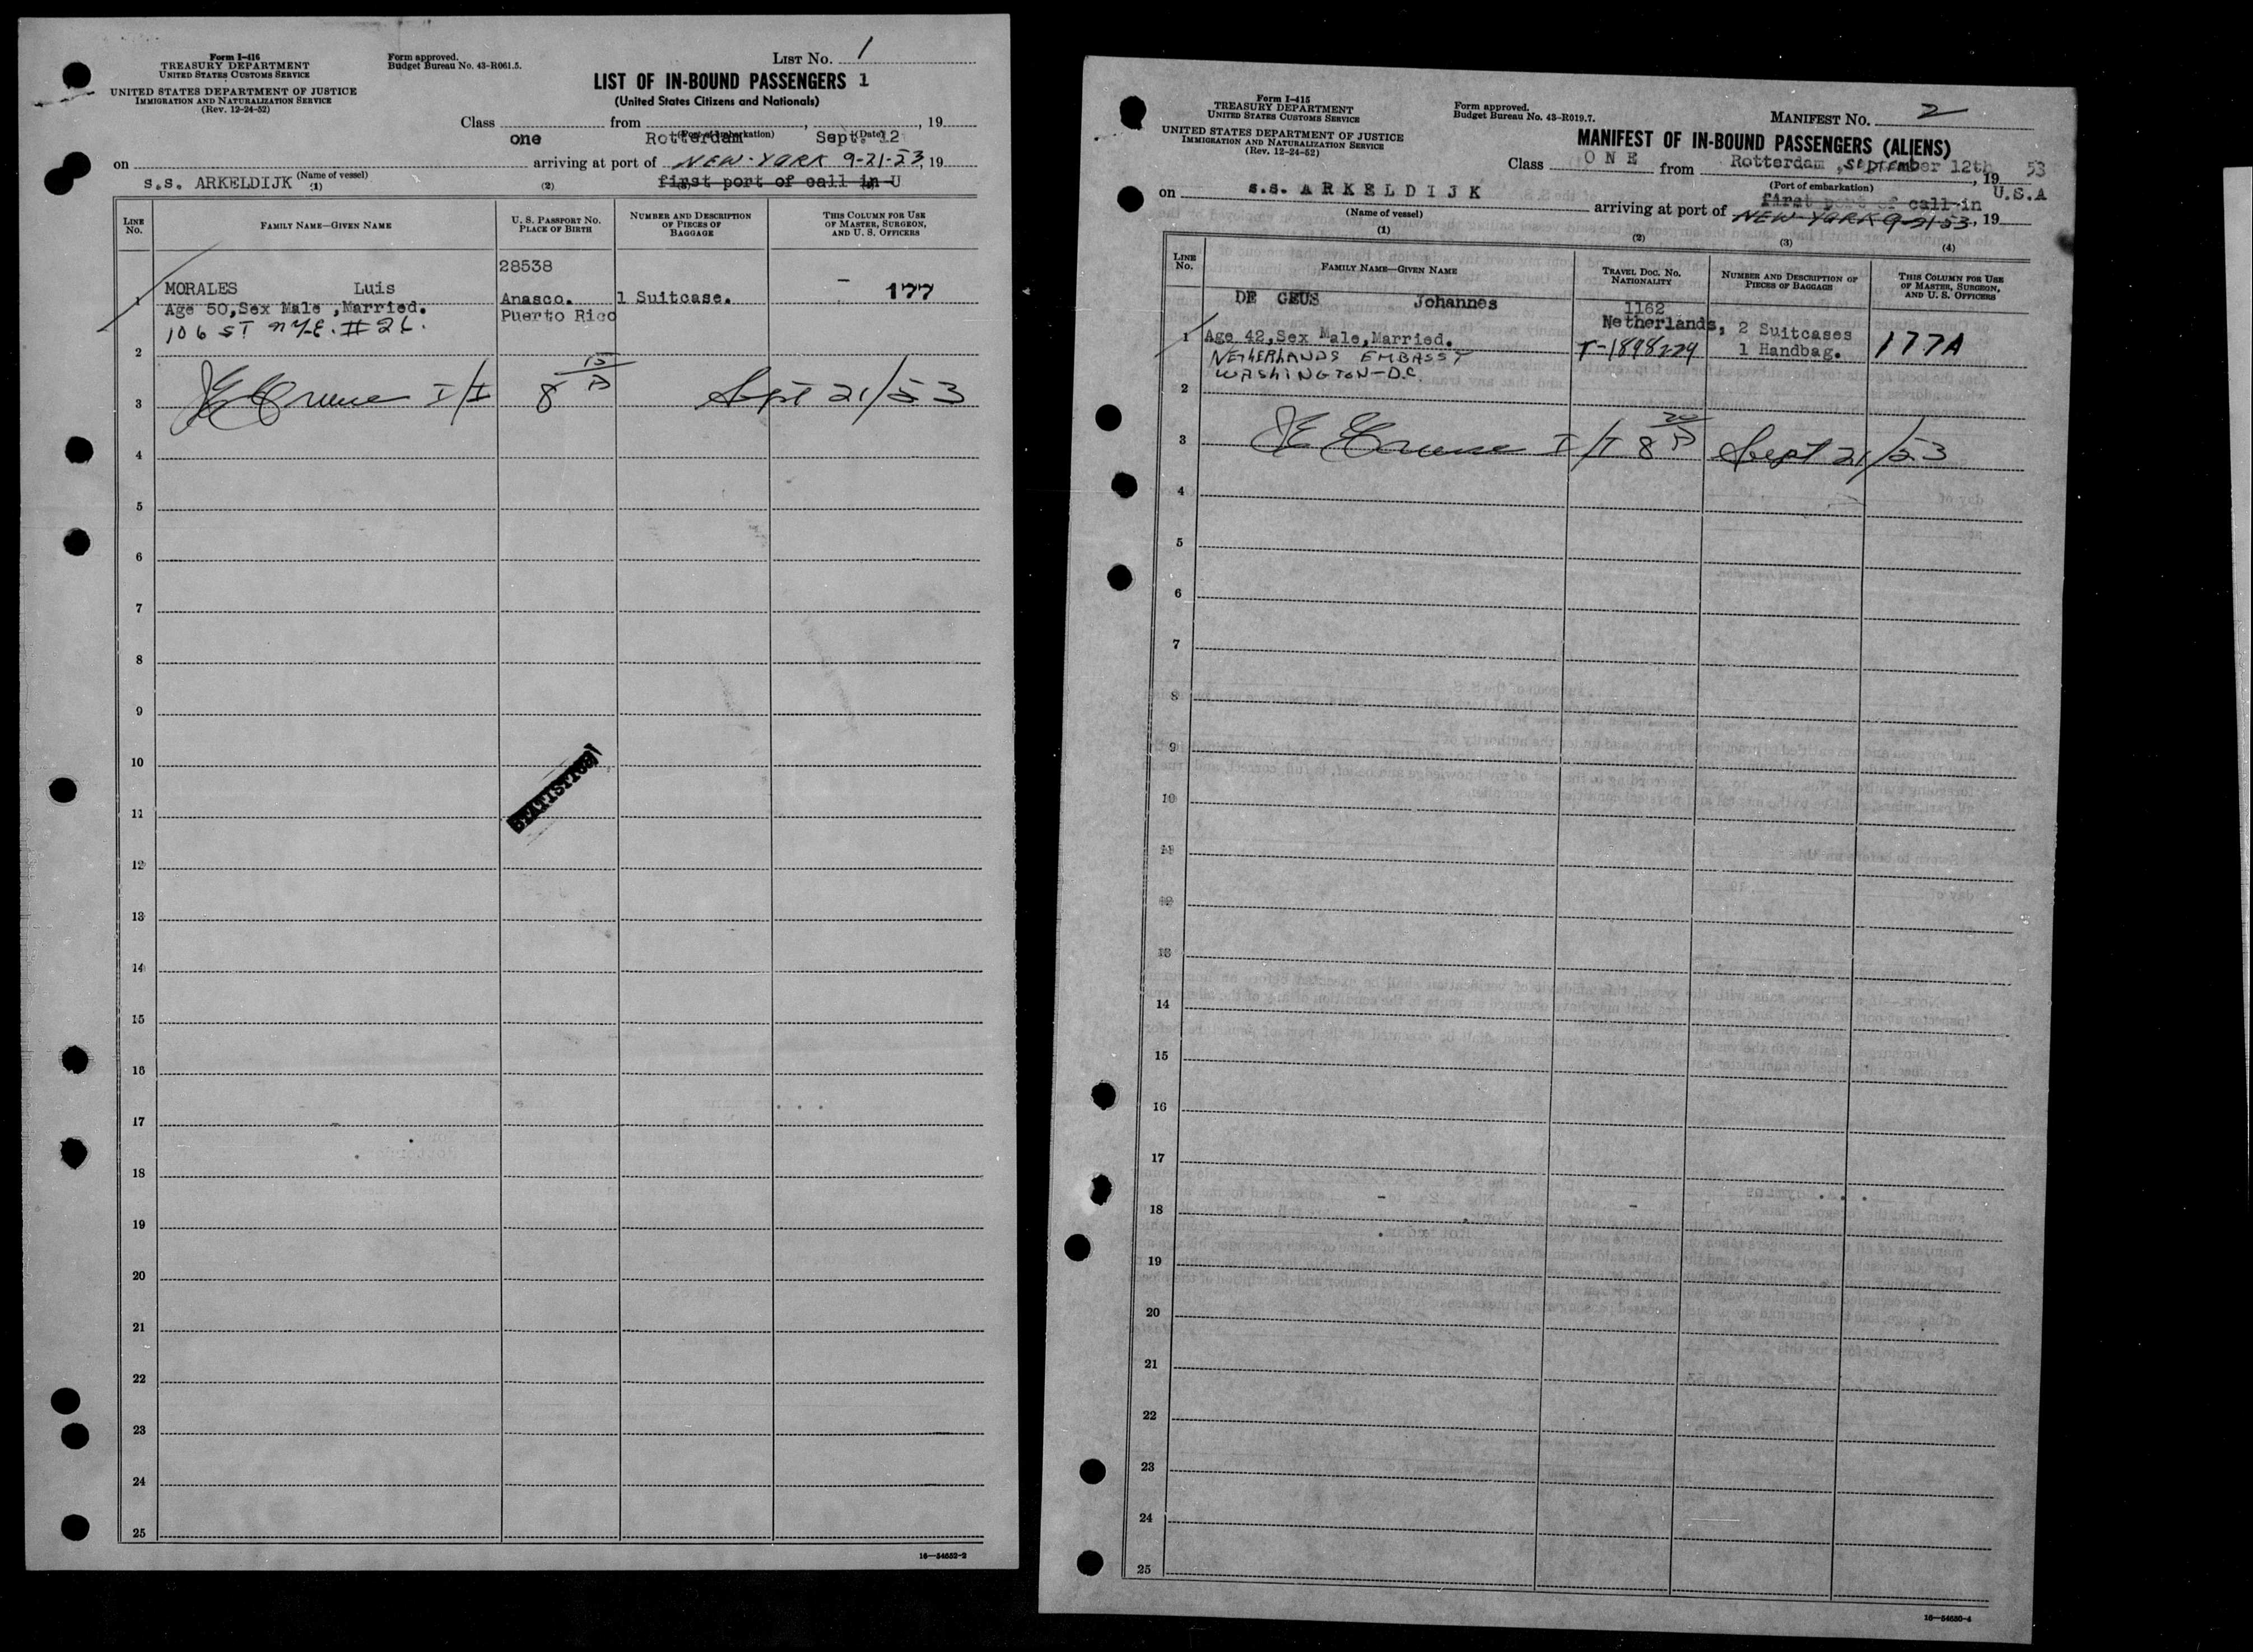 Form I-416
TREASURY DEPARTMENT
UNITED STATES CUSTOMS SERVICE
UNITED STATES DEPARTMENT OF JUSTICE
IMMIGRATION AND NATURALIZATION SERVICE
(Rev. 12-24-52)
Form approved.
Budget Bureau No. 43-R061.5.
LIST NO. 1
LIST OF IN-BOUND PASSENGERS 1
(United States Citizens and Nationals)
Class one from Rotterdam (Port of embarkation), Sept. 12 (Date), 19
on s.s. ARKELDIJK (Name of vessel) arriving at port of NEW-YORK 9-21-53, 19
first port of call in U
(1) (2)
LINE No.
FAMILY NAME—GIVEN NAME
U. S. PASSPORT NO. PLACE OF BIRTH
NUMBER AND DESCRIPTION OF PIECES OF BAGGAGE
THIS COLUMN FOR USE OF MASTER, SURGEON, AND U. S. OFFICERS
28538
1 MORALES Luis Anasco. 1 Suitcase. - 177
Age 50,Sex Male ,Married. Puerto Rico
106 ST
2
3 I/I 8 15 Sept 21/53
4
5
6
7
8
9
10
STATISTICS
11
12
13
14
15
16
17
18
19
20
21
22
23
24
25
16—54652-2
Form I-415
TREASURY DEPARTMENT
UNITED STATES CUSTOMS SERVICE
UNITED STATES DEPARTMENT OF JUSTICE
IMMIGRATION AND NATURALIZATION SERVICE
(Rev. 12-24-52)
Form approved.
Budget Bureau No. 43-R019.7.
MANIFEST NO. 2
MANIFEST OF IN-BOUND PASSENGERS (ALIENS)
Class ONE from Rotterdam, September 12th, 19 53
(Port of embarkation)
on s.s. ARKELDIJK arriving at port of first port of call in U.S.A
(Name of vessel) NEW-YORK 9-21-53, 19
(1) (2) (3) (4)
LINE No.
FAMILY NAME—GIVEN NAME
TRAVEL DOC. NO. NATIONALITY
NUMBER AND DESCRIPTION OF PIECES OF BAGGAGE
THIS COLUMN FOR USE OF MASTER, SURGEON, AND U. S. OFFICERS
DE GEUS Johannes 1162
Netherlands, 2 Suitcases
1 Age 42,Sex Male,Married. T-1898229 1 Handbag. 177A
NETHERLANDS EMBASSY
WASHINGTON-D.C.
2
3 I/I 8 20 Sept 21/53
4
5
6
7
8
9
10
11
12
13
14
15
16
17
18
19
20
21
22
23
24
25
16—54650-4